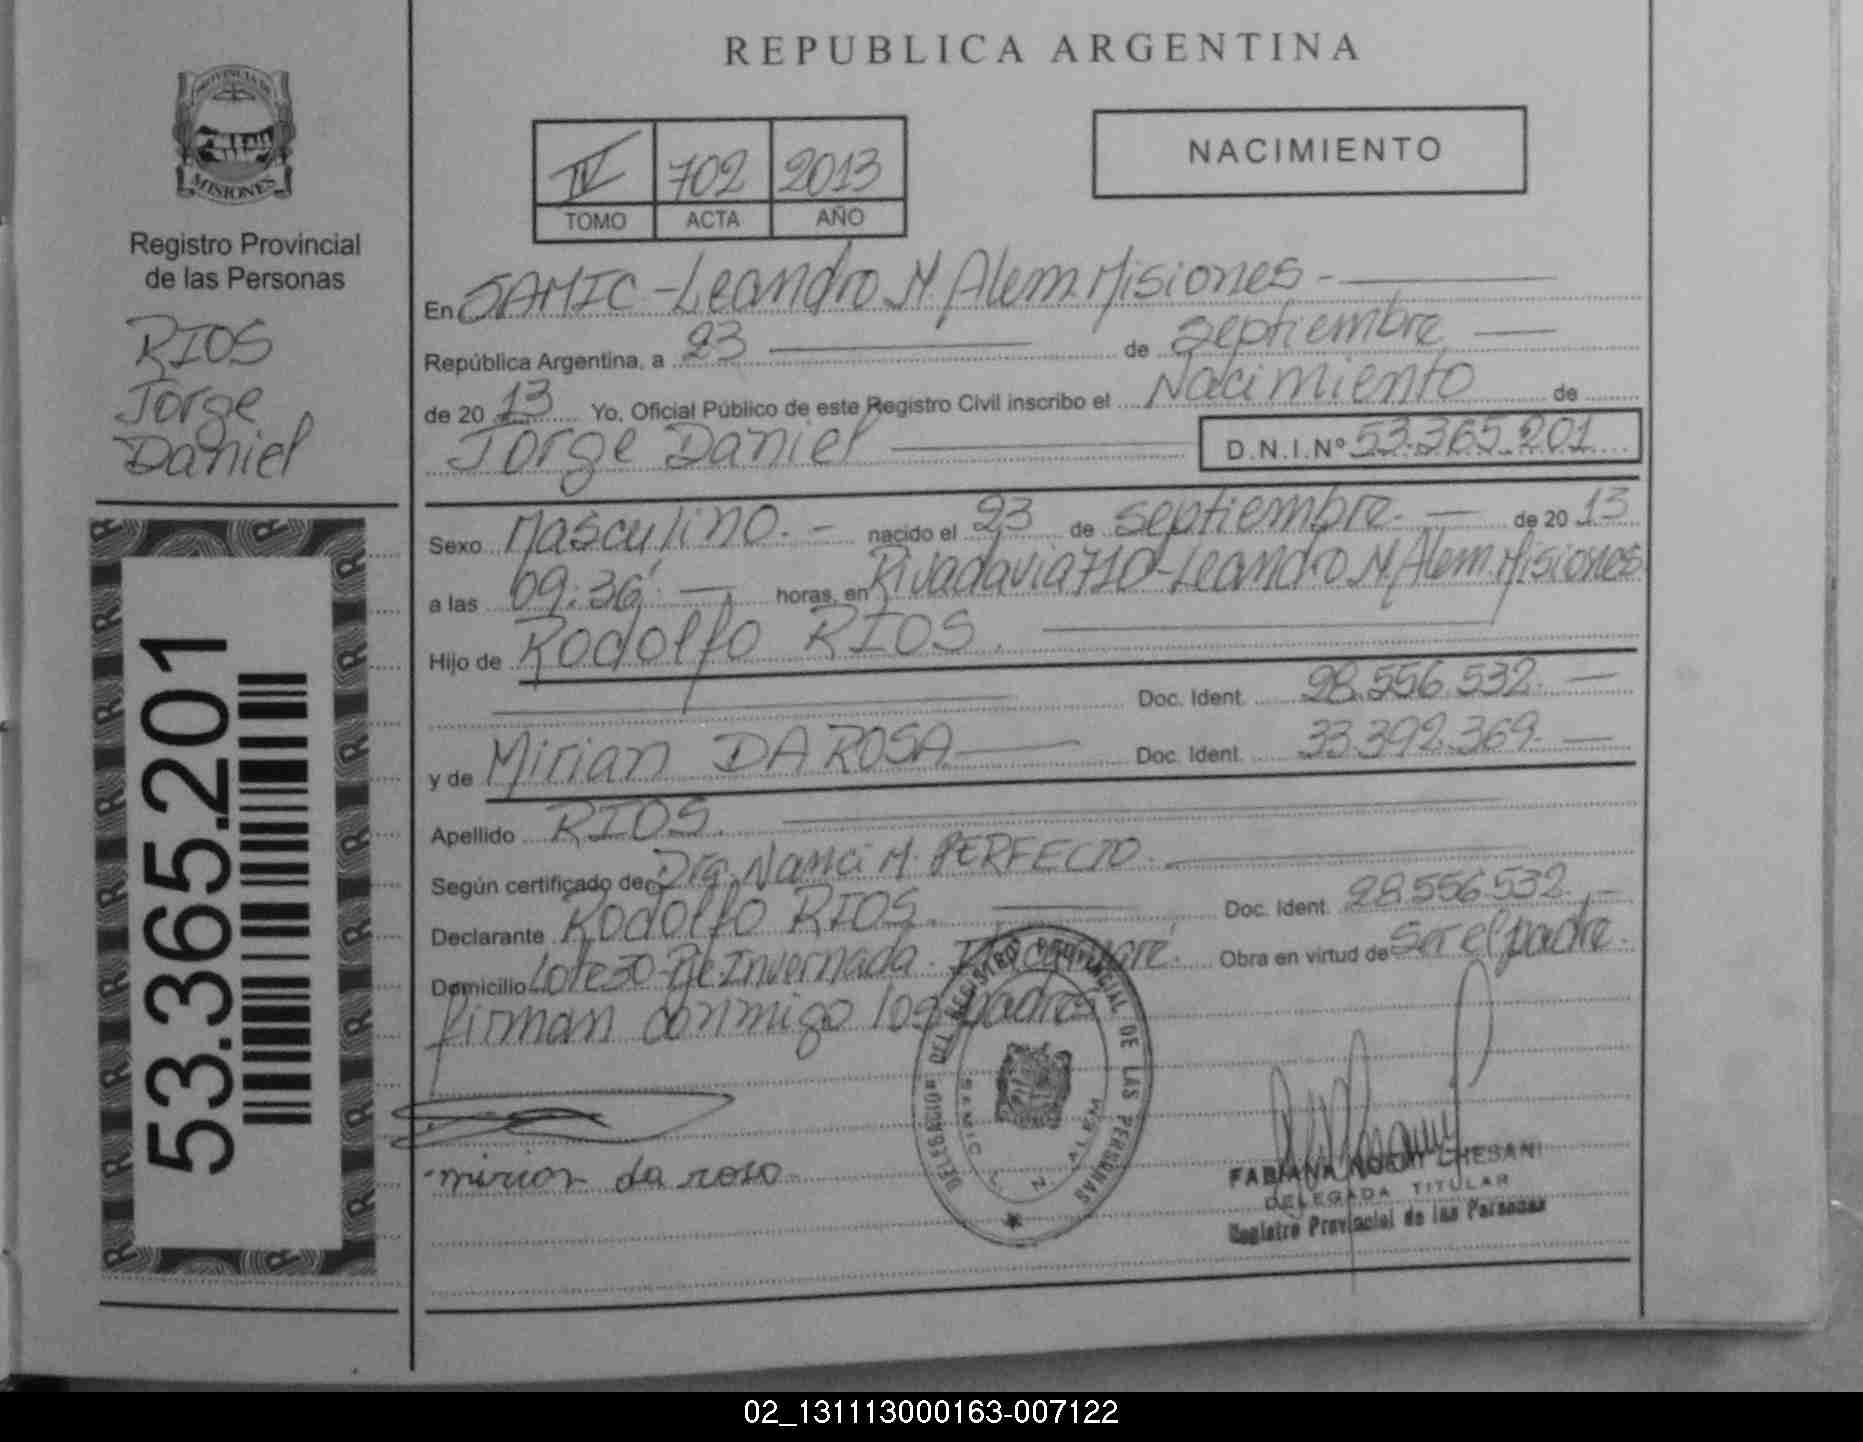 REPUBLICA ARGENTINA
PROVINCIA DE
MISIONES
Registro Provincial
de las Personas
RIOS
Jorge
Daniel
53.365.201
IV 702 2013
TOMO ACTA AÑO
NACIMIENTO
En SAMIC - Leandro N. Alem. Misiones -
República Argentina, a 23 de septiembre
de 20 13 Yo, Oficial Público de este Registro Civil inscribo el Nacimiento de
Jorge Daniel D.N.I.Nº 53.365.201
Sexo Masculino. - nacido el 23 de septiembre. - de 20 13
a las 09:36 - horas, en Rivadavia 710 - Leandro N Alem. Misiones
Hijo de Rodolfo RIOS.
Doc. Ident. 28.556.532. -
y de Mirian DA ROSA Doc. Ident. 33.392.369. -
Apellido RIOS.
Según certificado de Dra. Nanci M. PERFECTO.
Declarante Rodolfo RIOS. Doc. Ident. 28.556.532. -
Domicilio Lote 30 Invernada. Obra en virtud de Ser el padre.
firman conmigo los padres
mirian da rosa
DEL REGISTRO PROVINCIAL DE LAS PERSONAS
SAMIC L. N. ALEM
FABIANA NOEMI CHESANI
DELEGADA TITULAR
Registro Provincial de las Personas
02_131113000163-007122